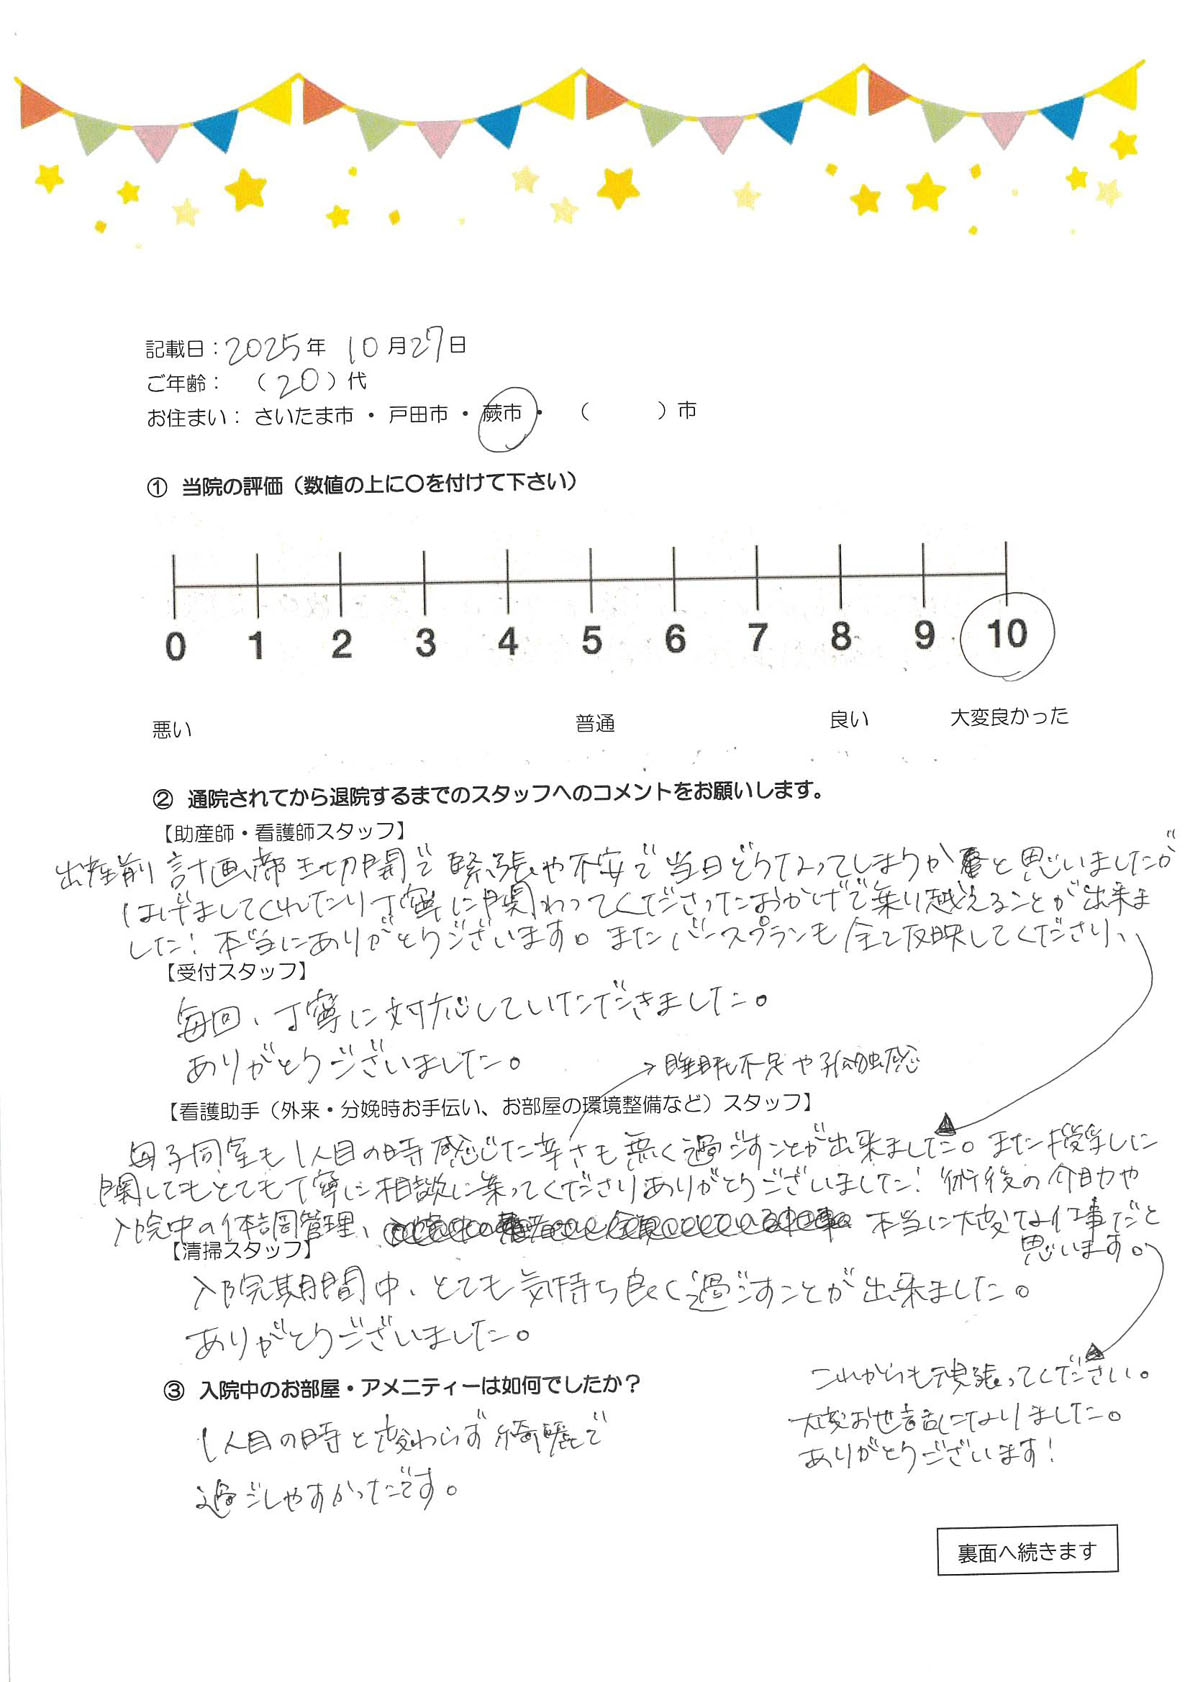 記載日：2025年 10月27日
ご年齢： （ 20 ）代
お住まい： さいたま市 ・ 戸田市 ・ 蕨市 ・ （ ）市
① 当院の評価（数値の上に〇を付けて下さい）
0 1 2 3 4 5 6 7 8 9 10
悪い 普通 良い 大変良かった
② 通院されてから退院するまでのスタッフへのコメントをお願いします。
【助産師・看護師スタッフ】
出産前 計画帝王切開で緊張や不安で当日どうなってしまうか と思いましたが
はげましてくれたり丁寧に関わってくださったおかげで乗り越えることが出来ま
した！本当にありがとうございます。またバースプランも全て反映してくださり、
【受付スタッフ】
毎回、丁寧に対応していただきました。
ありがとうございました。
→睡眠不足や孤独感
【看護助手（外来・分娩時お手伝い、お部屋の環境整備など）スタッフ】
母子同室も1人目の時感じた辛さも無く過ごすことが出来ました。また授乳に
関してもとても丁寧に相談に乗ってくださりありがとうございました！術後の介助や
入院中の体調管理、 本当に大変な仕事だと
思います。
【清掃スタッフ】
入院期間中、とても気持ち良く過ごすことが出来ました。
ありがとうございました。
これからも頑張ってください。
大変お世話になりました。
ありがとうございます！
③ 入院中のお部屋・アメニティーは如何でしたか？
1人目の時と変わらず綺麗で
過ごしやすかったです。
裏面へ続きます